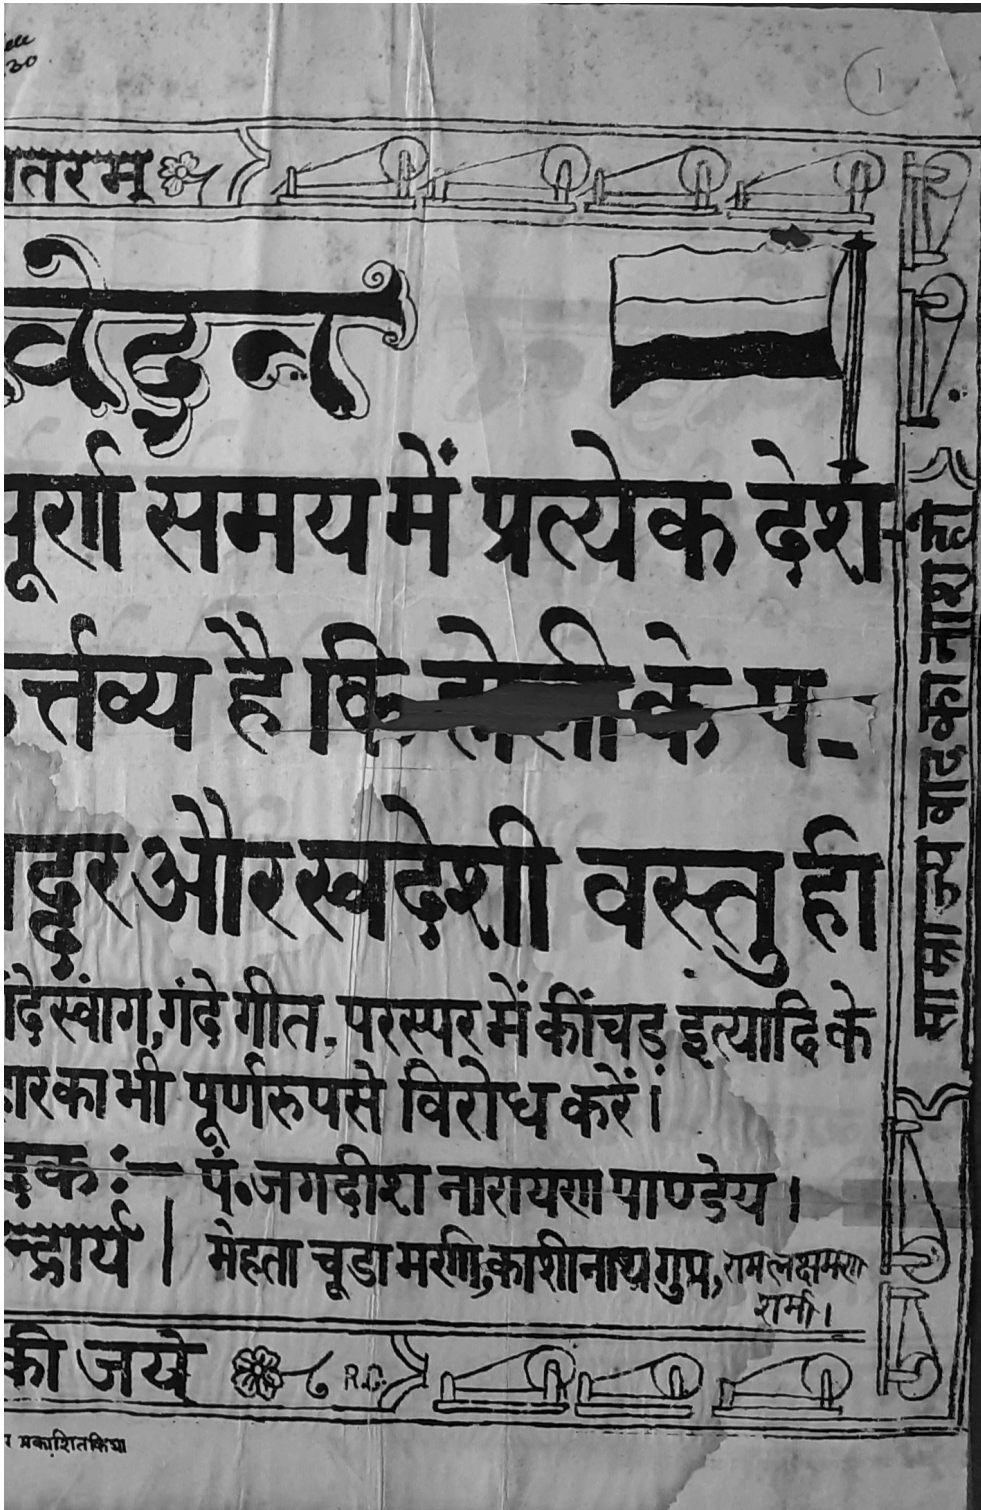 30
1
तरम्
वेदन
पूर्ण समय में प्रत्येक देश
र्त्तव्य है कि होली के प-
द्दर और स्वदेशी वस्तु ही
दे स्वांग, गंदे गीत, परस्पर में कींचड़ इत्यादि के
ार का भी पूर्णरुप से विरोध करें।
दक :— पं. जगदीश नारायण पाण्डेय।
न्द्रार्य | मेहता चूडा मणी, काशीनाथ गुप्त, राम लक्षमण
शर्मा।
की जये R.C.
प्रकाशित किया
साम्राज्य वाद का नाश हो